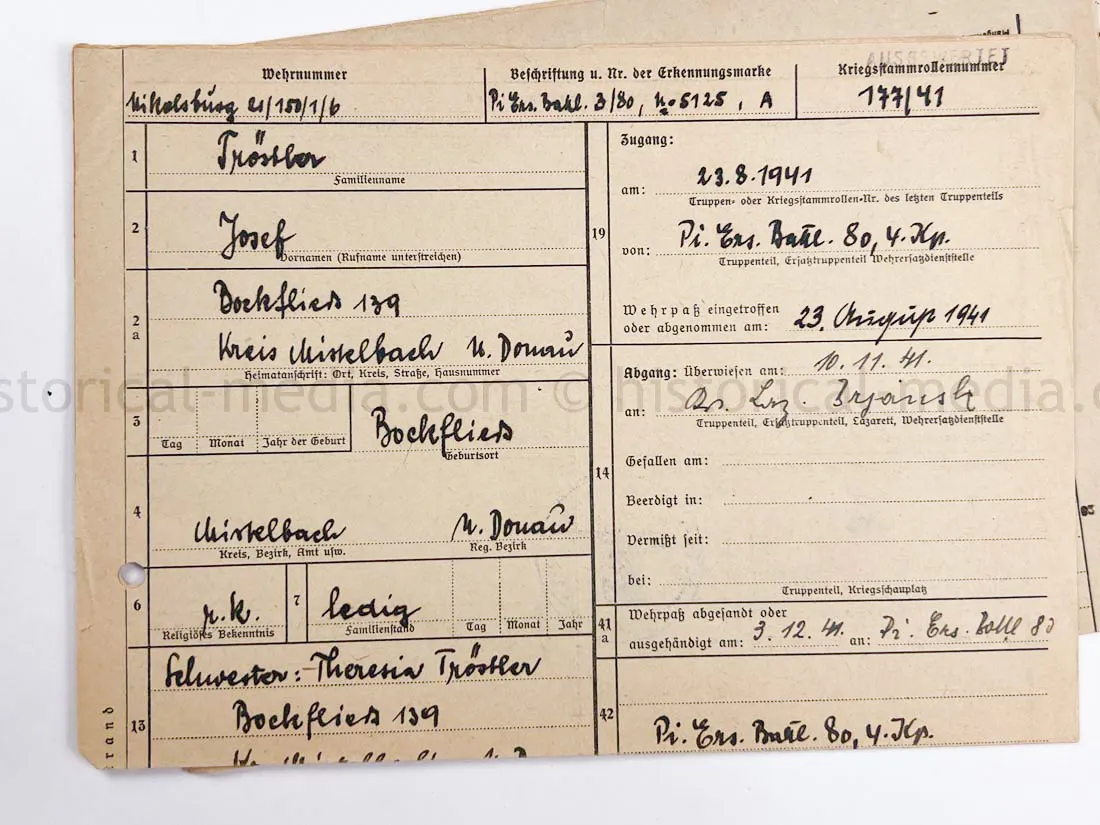 AUSGEWERTET
Wehrnummer
Nikolsburg 21/150/1/6
Beschriftung u. Nr. der Erkennungsmarke
Pi. Ers. Batl. 3/80, No 5125, A
Kriegsstammrollennummer
177/41
1
Tröstler
Familienname
2
Josef
Vornamen (Rufname unterstreichen)
2a
Bockfließ 139
Kreis Mistelbach N. Donau
Heimatanschrift: Ort, Kreis, Straße, Hausnummer
3
Tag Monat Jahr der Geburt
Bockfließ
Geburtsort
4
Mistelbach N. Donau
Kreis, Bezirk, Amt usw. Reg. Bezirk
6
r.k.
Religiöses Bekenntnis
7
ledig
Familienstand Tag Monat Jahr
13
Schwester: Theresia Tröstler
Bockfließ 139
rand
19
Zugang:
am: 23.8.1941
Truppen- oder Kriegsstammrollen-Nr. des letzten Truppenteils
von: Pi. Ers. Batl. 80, 4. Kp.
Truppenteil, Ersatztruppenteil Wehrersatzdienststelle
Wehrpaß eingetroffen
oder abgenommen am: 23. August 1941
14
Abgang: überwiesen am: 10.11.41.
an: Kr. Laz. Brjansk
Truppenteil, Ersatztruppenteil, Lazarett, Wehrersatzdienststelle
Gefallen am:
Beerdigt in:
Vermißt seit:
bei:
Truppenteil, Kriegsschauplatz
41a
Wehrpaß abgesandt oder
ausgehändigt am: 3.12.41. an: Pi. Ers. Batl 80
42
Pi. Ers. Batl. 80, 4. Kp.
historical-media.com © historical-media.com